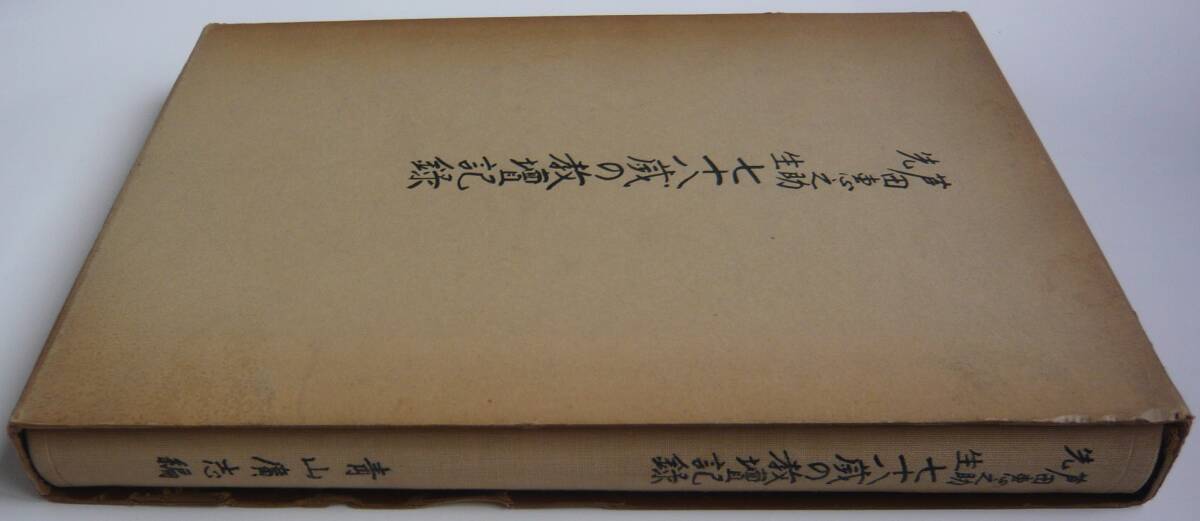 芦田恵之助先生
七十八歳の教壇記録
芦田恵之助先生
七十八歳の教壇記録
青山廣志編